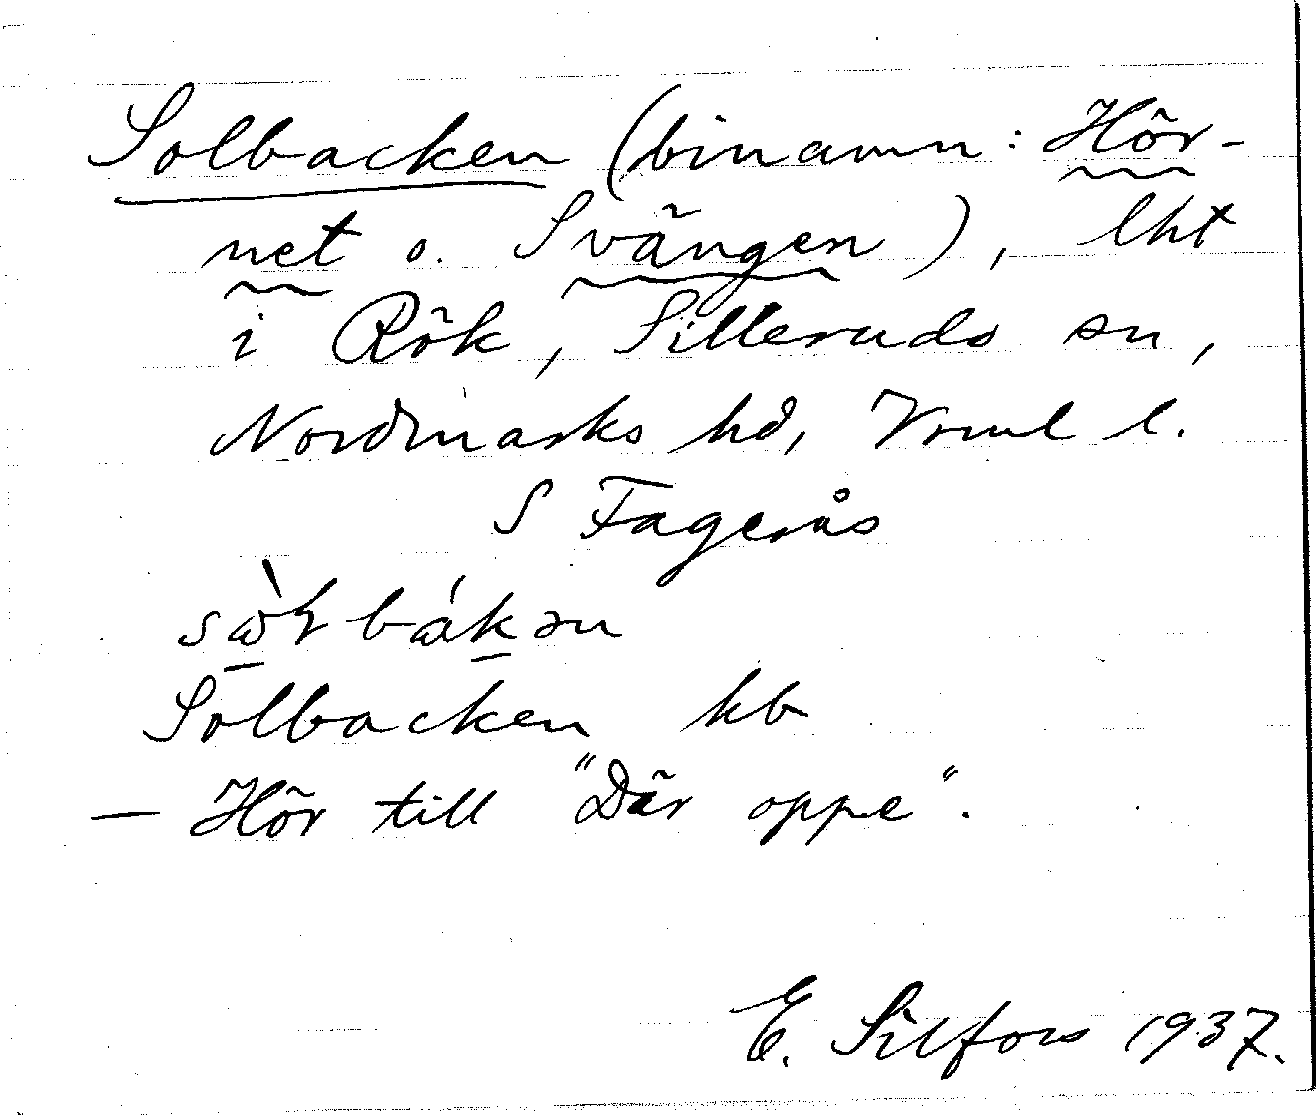 Solbacken (binamn: Hör-
net o. Svängen), lht
i Rök, Silleruds sn,
Nordmarks hd, Vrml l.
S Fagerås
Solbacken kb
— Hör till "Där oppe".
E. Silfors 1937.